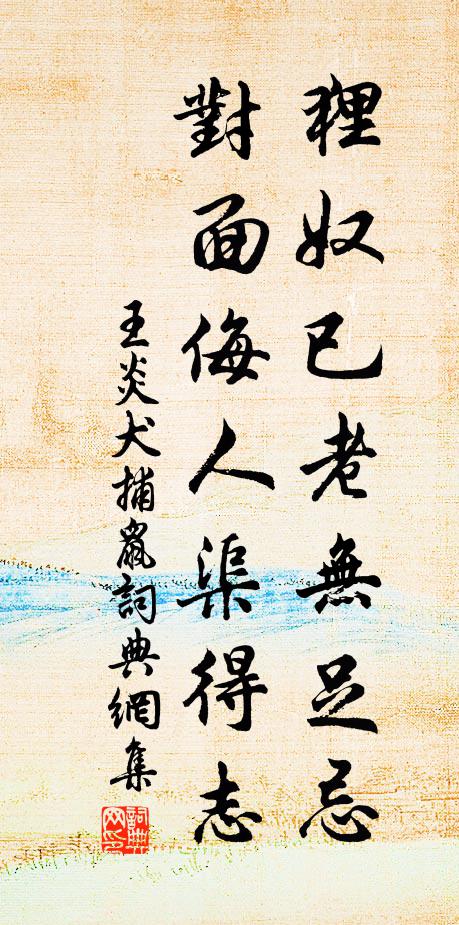 狸奴已老無足忌
對面侮人渠得志
王炎犬捕鼠詞典網集
詞典網印